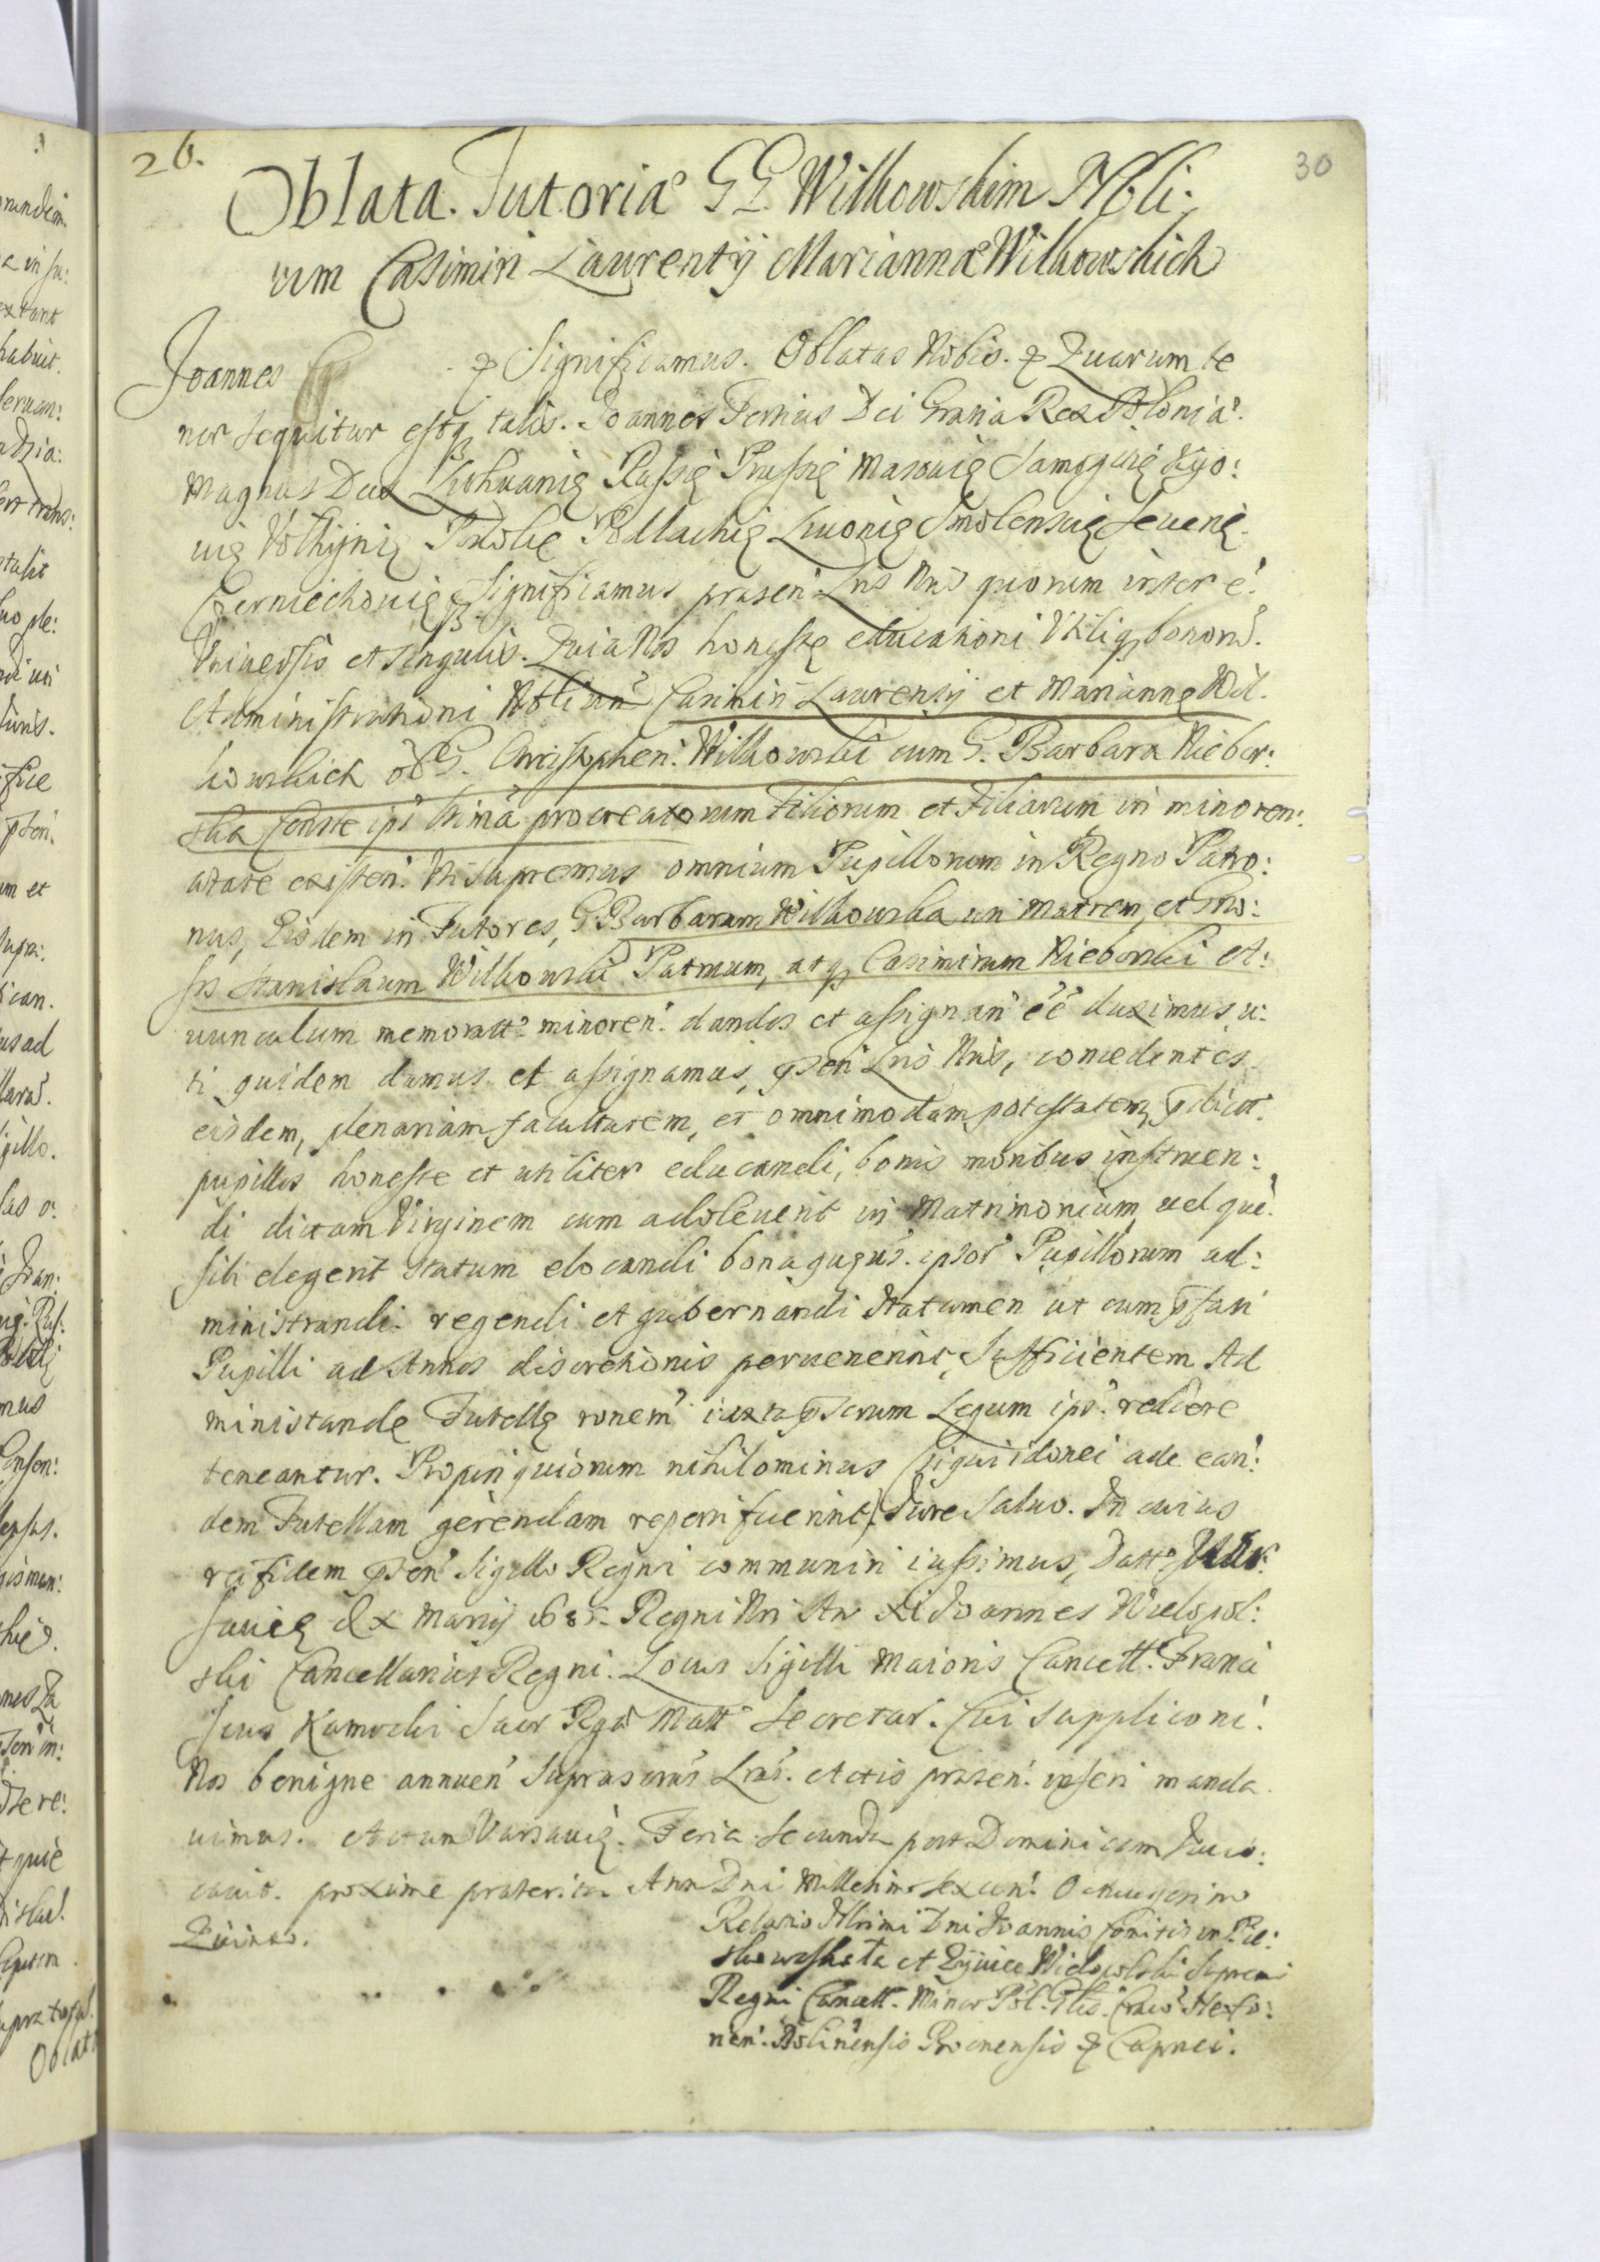 26.
30
Oblata. Tutoria GG Wilkowskim Nbli:
um Casimiri Laurentij Mariannæ Wilkowskich
Joannes & Significamus. Oblatas Nobis. & Quarum te
nor sequitur estq talis. Joannes Tertius Dei Gratia Rex Poloniæ.
Magnus Dux Lithvanię Russię Prussię Masouię Samogitię Kijo:
uię Volhÿnię Podolię Podlachię Liuonię Smolenscię Seuerię
Czerniechouię Significamus præsen Lris Nris quorum inter e.
Vniuersis et singulis. Quia Nos honestę educationi Vtiliq bonorũ.
Administrationi Nblium Casimiri Laurentij et Mariannę Wil.
kowskich olĩ G. Christopheri. Wilkowski cum G. Barbara Niebor:
ska Consorte procreatorum Filiorum et Filiarum in minoren:
ætate existen. Vti supremus omnium Pupillorum in Regno Patro:
nus, Eisdem in Tutores, G. Barbaram Wilkowska uti Matrem, et Gno:
sos Stanislaum Wilkowski Patruum, atq Casimirum Nieborski A:
uunculum memoratt minoren. dandos et assignan ẽẽ duximus, u:
ti quidem damus et assignamus, pñti Lris Nris, concedentes
eisdem, plenariam facultatem, et omnimodam potestatem pdictt.
pupillos honeste et utiliter educandi, bonis moribus instruen:
di dictam Virginem cum adoleuerit in Matrimonium, uel quẽ
sibi elegerit statum elocandi bona quęuis. ipsor Pupillorum ad:
ministrandi regendi et gubernandi Ita tamen ut cum pfati
Pupilli ad Annos discretionis peruenerint, Sufficientem Ad
ministandę Tutellę ronem iuxta pscrum Legum ips. reddere
teneantur. Propinquiorum nihilominus (siqui idonei ade ean:
dem Tutellam gerendam reperti fuerint) Jure Saluo. In cuius
rei fidem pñten Sigillo Regni communiri iussimus, Datt Var:
sauię d X Martij 1685. Regni Nri An XI Joannes Wielopol:
ski Cancellarius Regni. Locus Sigilli Maioris Cancell. Franci
scus Kumocki Sacr Rgæ Matt Secretar. Cui supplicõni.
Nos benigne annuen Suprascras Lras. Actis præsen. inseri manda
uimus. Actum Varsauię. Feria Secunda post Dominicam Inuo:
cauit. proxime præterita Ann Dni Millesimo sexcen. Octuagesimo
Quinto.
Relatio Illrimi Dni Joannis Comitis in Pie:
skowaskala et Zÿwiec Wielopolski Supremi
Regni Cancell. Minor Pol. Glis. Crac